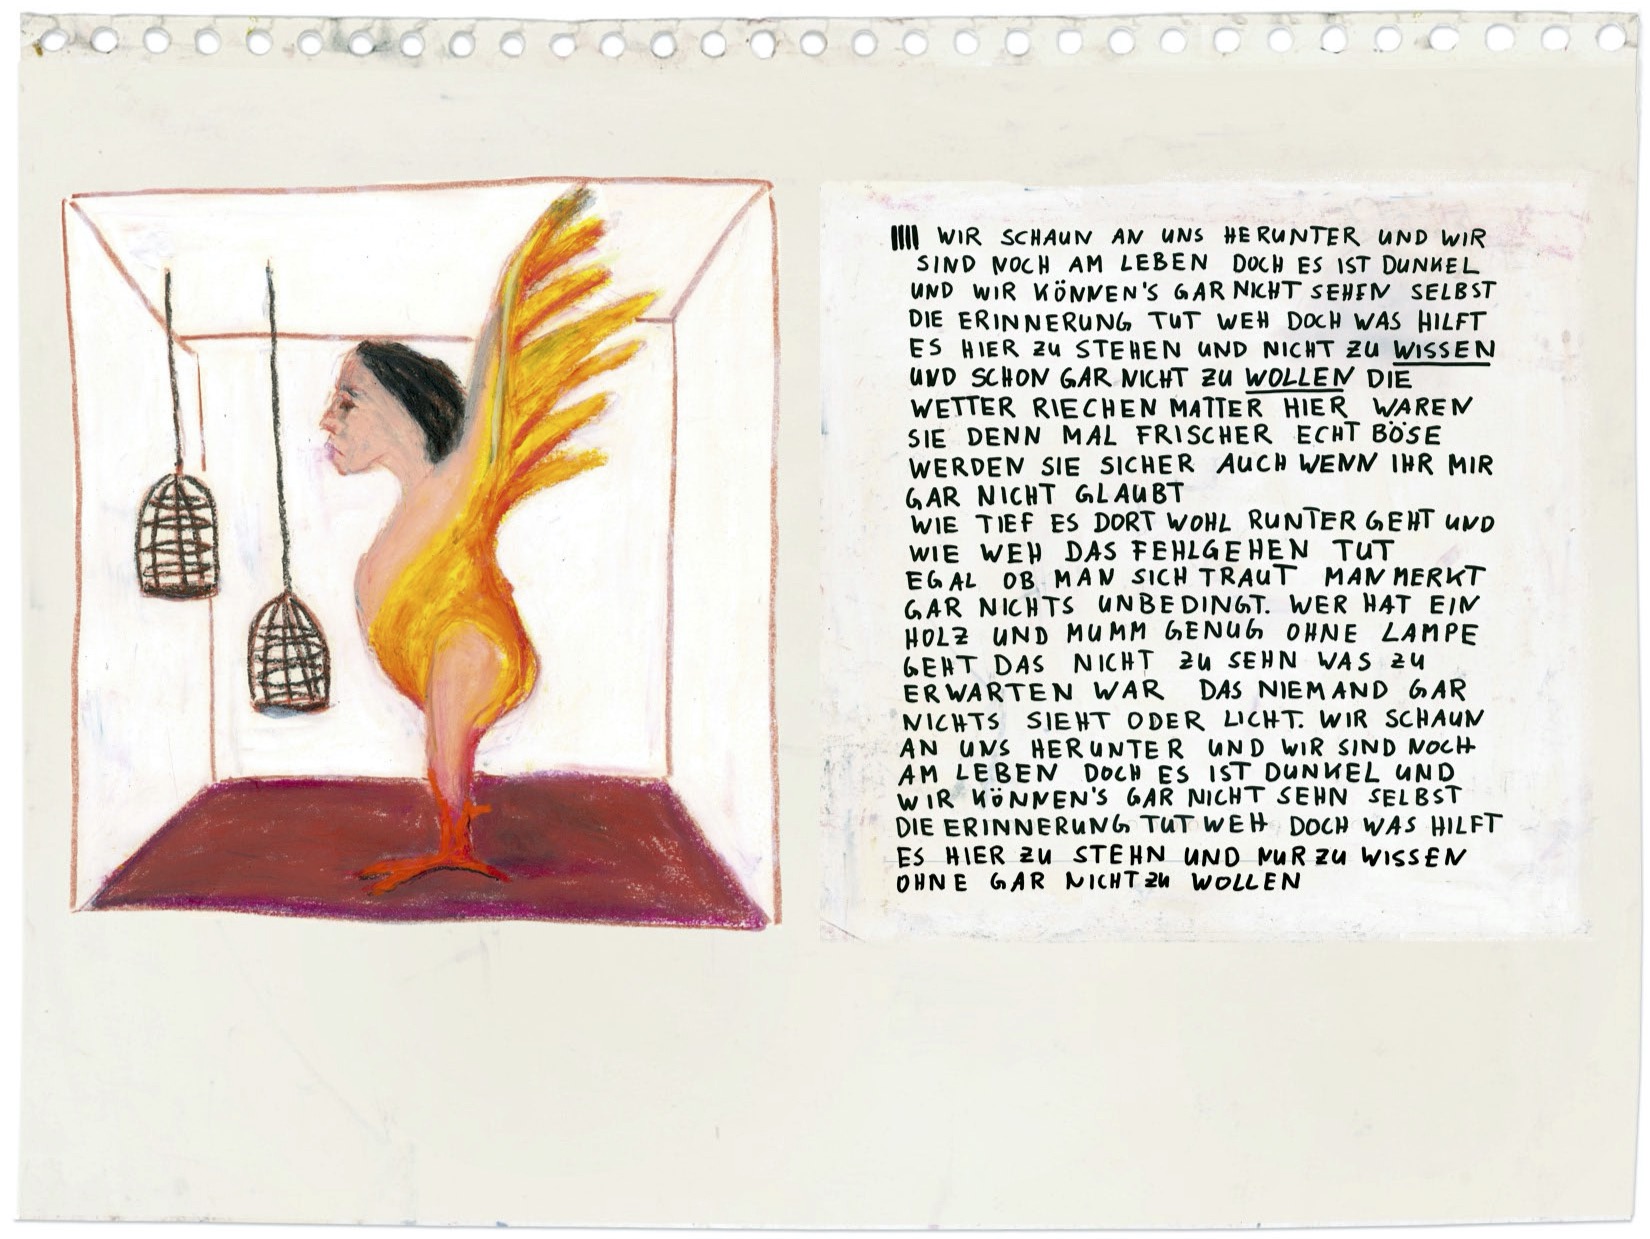 IIII WIR SCHAUN AN UNS HERUNTER UND WIR
SIND NOCH AM LEBEN DOCH ES IST DUNKEL
UND WIR KÖNNEN'S GAR NICHT SEHEN SELBST
DIE ERINNERUNG TUT WEH DOCH WAS HILFT
ES HIER ZU STEHEN UND NICHT ZU WISSEN
UND SCHON GAR NICHT ZU WOLLEN DIE
WETTER RIECHEN MATTER HIER WAREN
SIE DENN MAL FRISCHER ECHT BÖSE
WERDEN SIE SICHER AUCH WENN IHR MIR
GAR NICHT GLAUBT
WIE TIEF ES DORT WOHL RUNTER GEHT UND
WIE WEH DAS FEHLGEHEN TUT
EGAL OB MAN SICH TRAUT MAN MERKT
GAR NICHTS UNBEDINGT. WER HAT EIN
HOLZ UND MUMM GENUG OHNE LAMPE
GEHT DAS NICHT ZU SEHN WAS ZU
ERWARTEN WAR DAS NIEMAND GAR
NICHTS SIEHT ODER LICHT. WIR SCHAUN
AN UNS HERUNTER UND WIR SIND NOCH
AM LEBEN DOCH ES IST DUNKEL UND
WIR KÖNNEN'S GAR NICHT SEHN SELBST
DIE ERINNERUNG TUT WEH DOCH WAS HILFT
ES HIER ZU STEHN UND NUR ZU WISSEN
OHNE GAR NICHT ZU WOLLEN